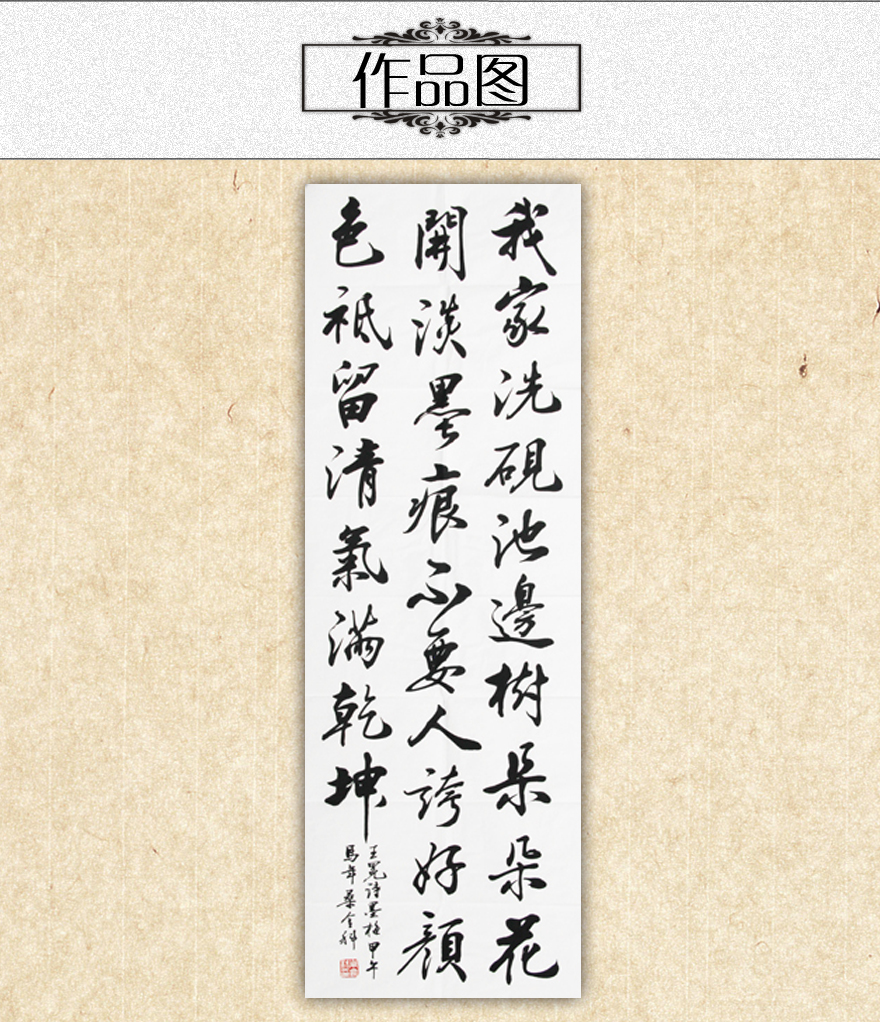 作品图
我家洗硯池邊樹朵朵花
開淡墨痕不要人誇好顏
色祗留清氣滿乾坤
王冕詩墨梅甲午
馬年桑全科